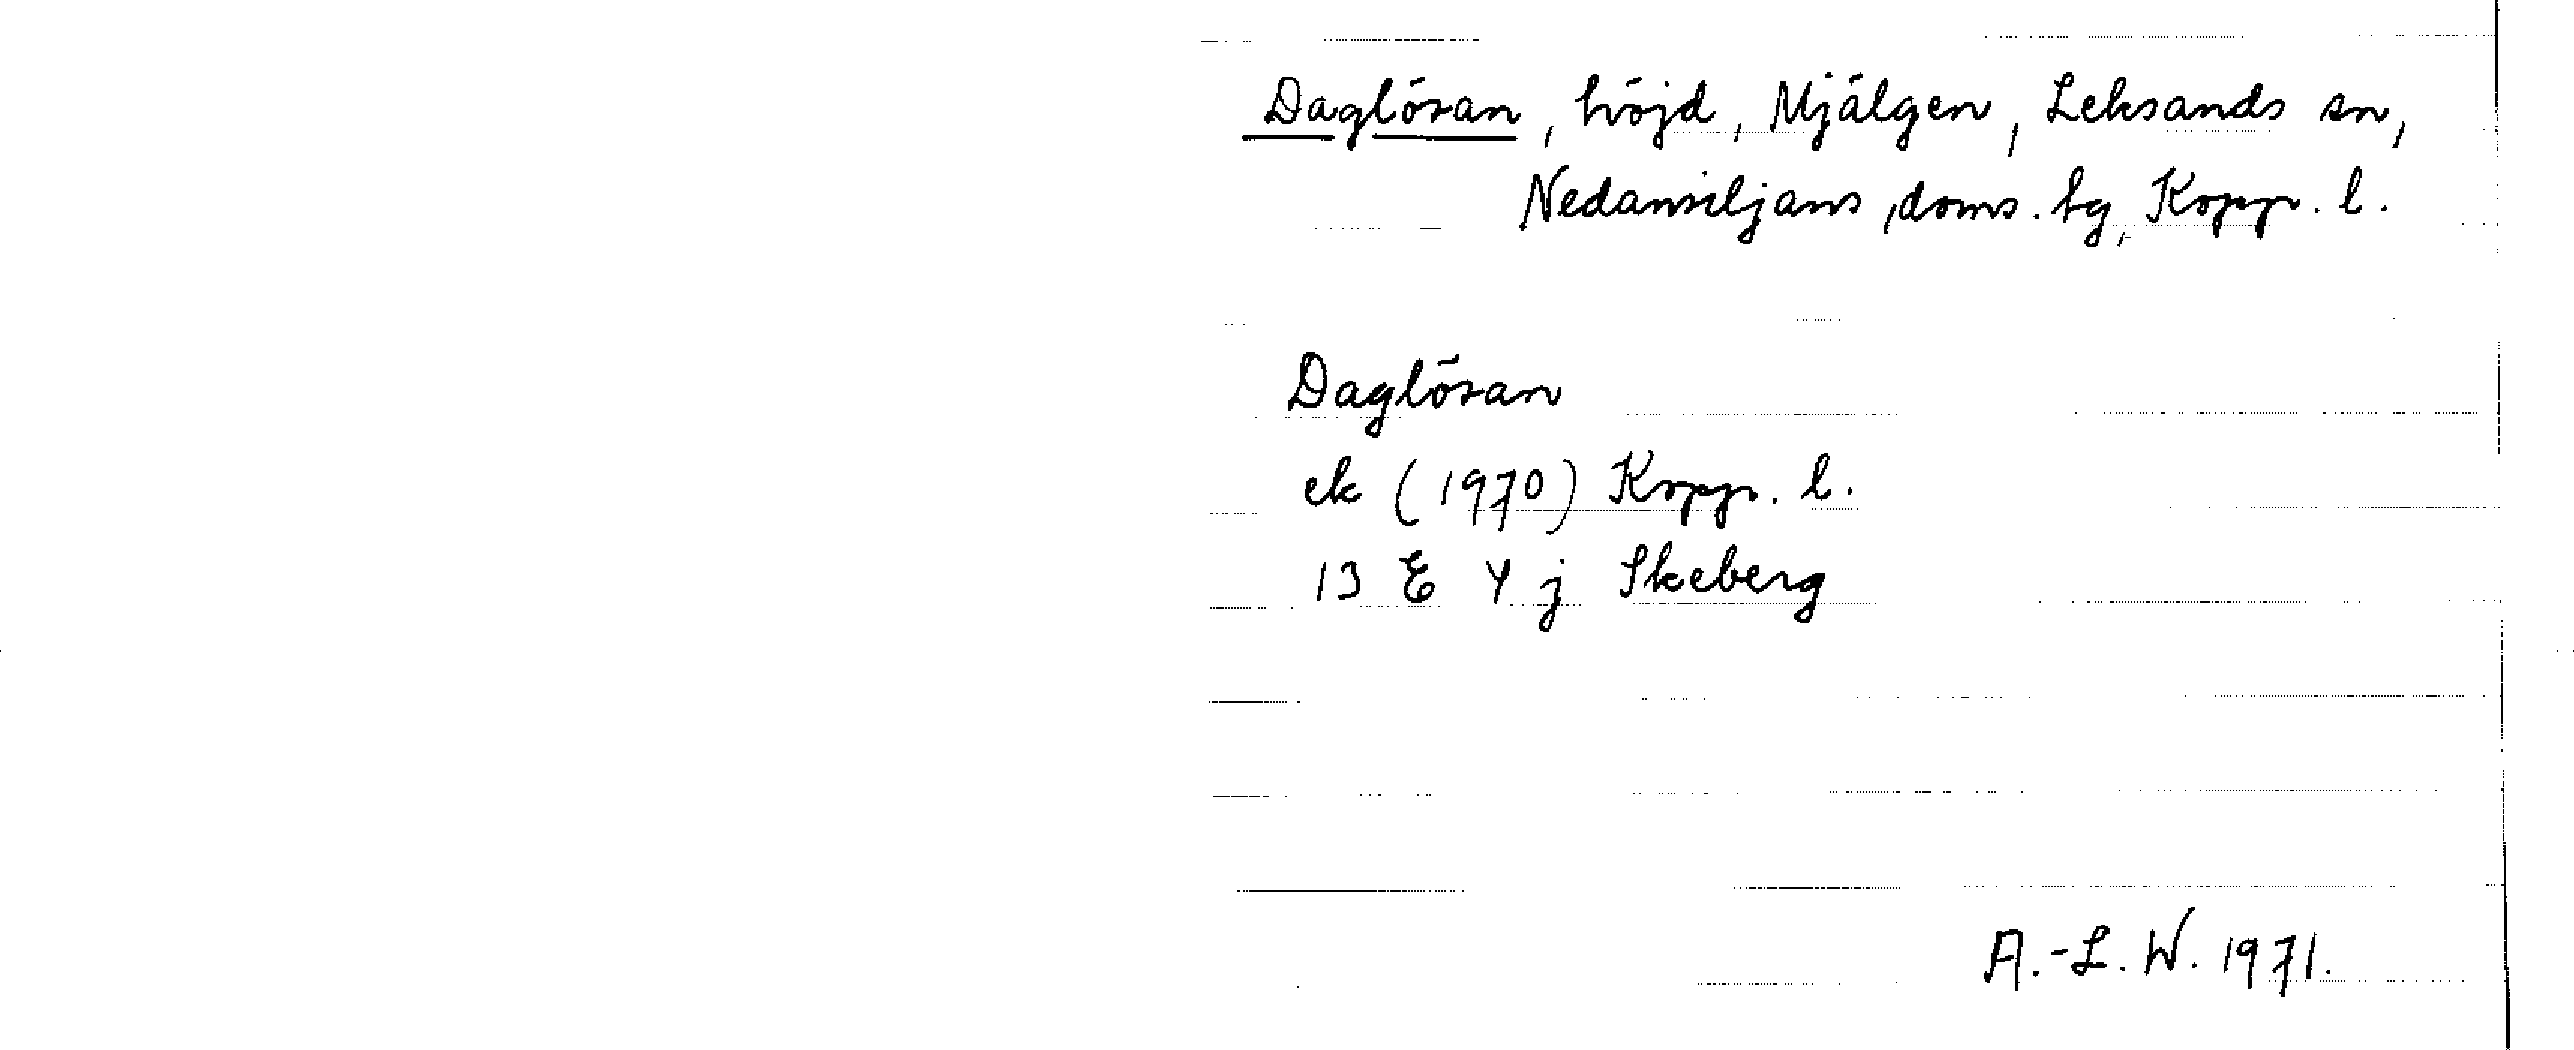 Daglösan, höjd, Mjälgen, Leksands sn,
Nedansiljans doms. tg, Kopp. l.
Daglösan
ek (1970) Kopp. l.
13 E 4 j Skeberg
A.-L. W. 1971.